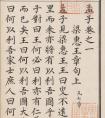 孟子卷之一
梁惠王章句上
孟子見梁惠王王曰叟不遠
里而來亦將有以利吾國乎
子對曰王何必曰利亦有仁
而已矣王曰何以利吾國大
曰何以利吾家士庶人曰何